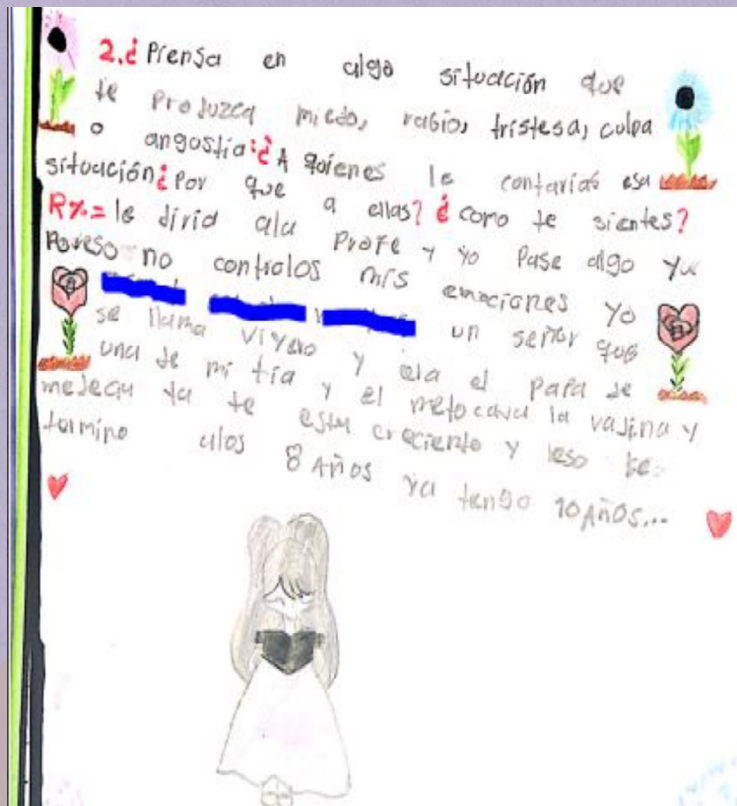 2.¿ Piensa en algo situación que
te produzca miedo, rabia, tristesa, culpa
o angustia:¿A quienes le contarías esa
situación¿Por que a ellas? ¿como te sientes?
R%.= le diria ala Profe y yo Pase algo
Poreso no controlos mis emociones yo
un señor que
se llama y el Papá de
una de mi tia y el metocava la vajina y
medecia ya te esta creciento y
termino alos 8 Años ya tengo 10 Años...